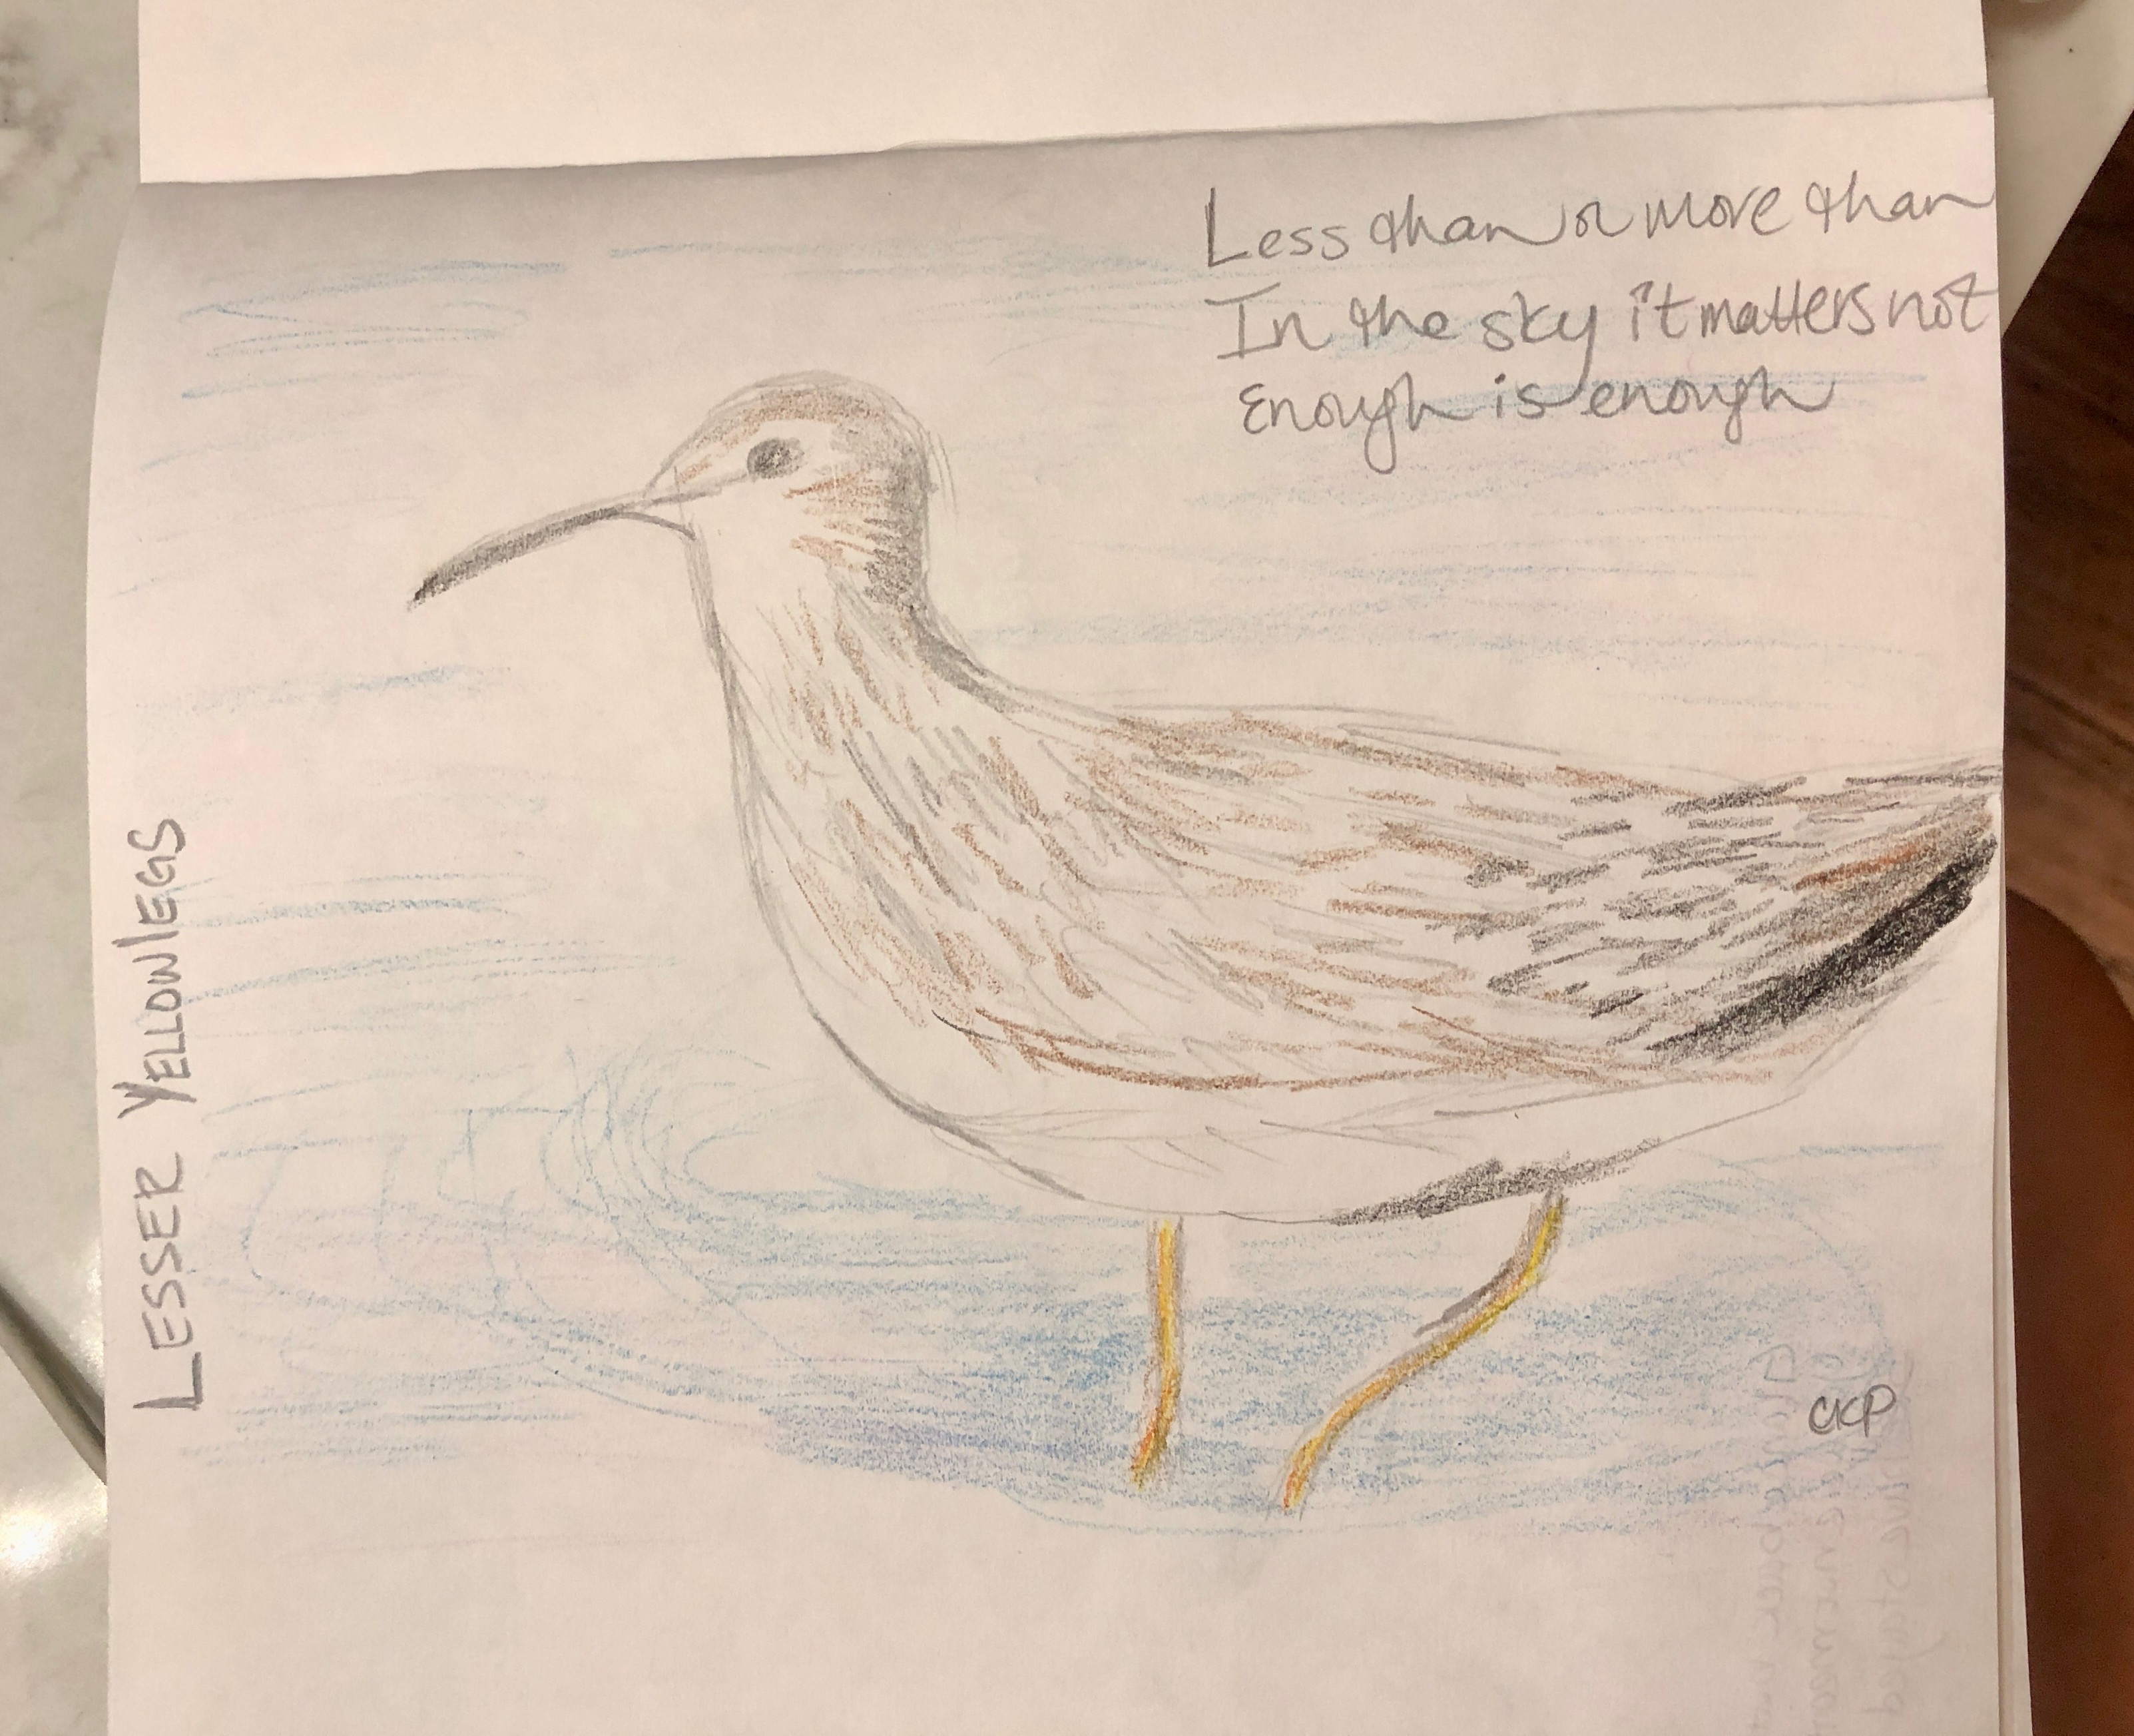 Less than or more than
In the sky it matters not
Enough is enough
LESSER YELLOWlEGS
CKP